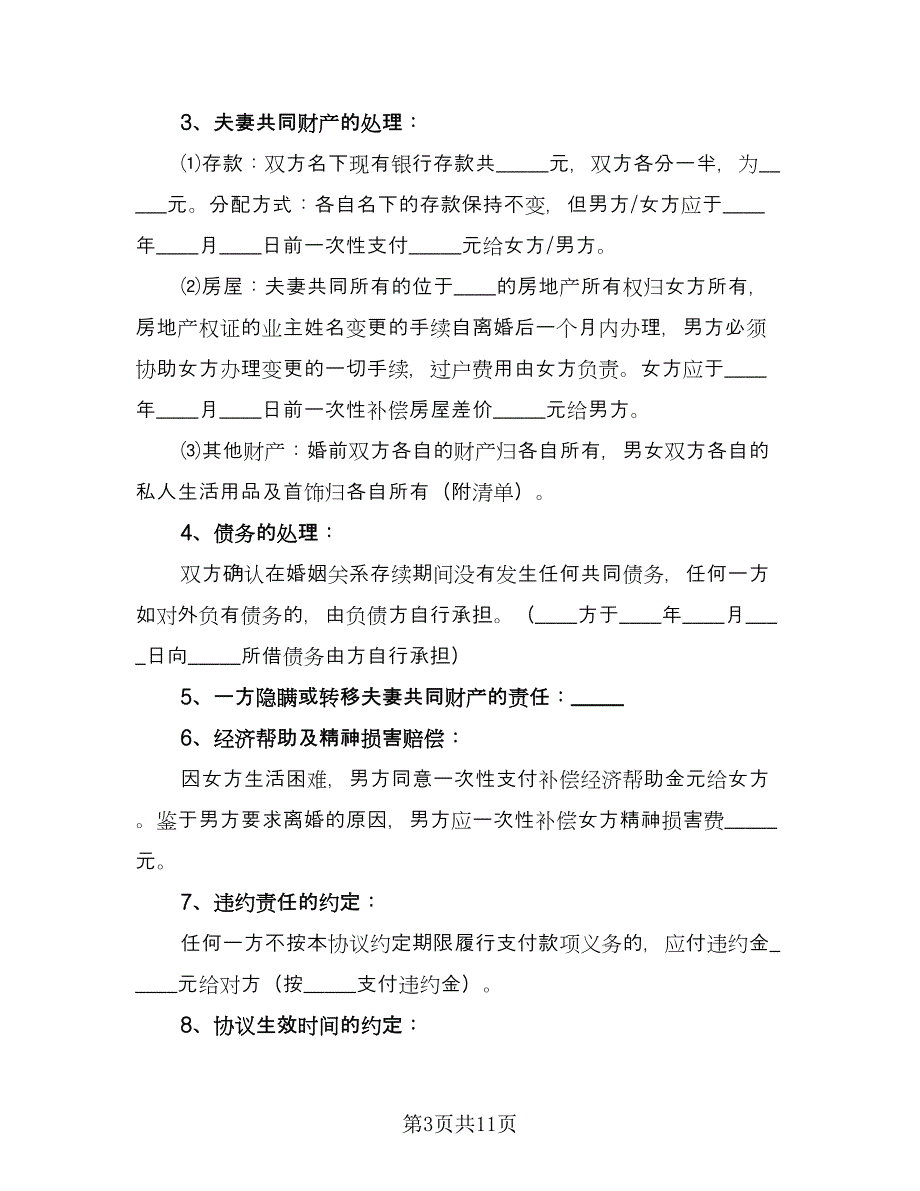 3、夫妻共同财产的处理：
⑴存款：双方名下现有银行存款共_____元，双方各分一半，为__
___元。分配方式：各自名下的存款保持不变，但男方/女方应于____
年____月____日前一次性支付_____元给女方/男方。
⑵房屋：夫妻共同所有的位于____的房地产所有权归女方所有，
房地产权证的业主姓名变更的手续自离婚后一个月内办理，男方必须
协助女方办理变更的一切手续，过户费用由女方负责。女方应于____
年____月____日前一次性补偿房屋差价_____元给男方。
⑶其他财产：婚前双方各自的财产归各自所有，男女双方各自的
私人生活用品及首饰归各自所有（附清单）。
4、债务的处理：
双方确认在婚姻关系存续期间没有发生任何共同债务，任何一方
如对外负有债务的，由负债方自行承担。（____方于____年____月___
_日向_____所借债务由方自行承担）
5、一方隐瞒或转移夫妻共同财产的责任：_____
6、经济帮助及精神损害赔偿：
因女方生活困难，男方同意一次性支付补偿经济帮助金元给女方
。鉴于男方要求离婚的原因，男方应一次性补偿女方精神损害费_____
元。
7、违约责任的约定：
任何一方不按本协议约定期限履行支付款项义务的，应付违约金_
____元给对方（按_____支付违约金）。
8、协议生效时间的约定：
第3页共11页